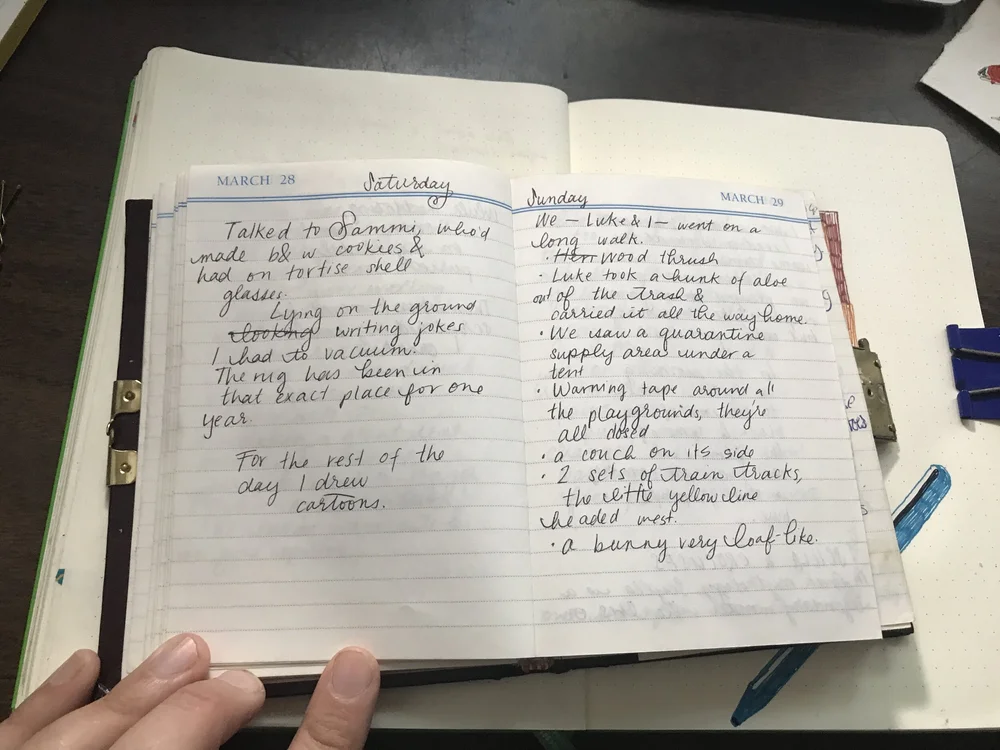 MARCH 28 Saturday
Talked to Sammi, who'd
made b&w cookies &
had on tortise shell
glasses.
Lying on the ground
looking writing jokes
I had to vacuum.
The rug has been in
that exact place for one
year.
For the rest of the
day I drew
cartoons.
Sunday MARCH 29
We – Luke & I – went on a
long walk.
· Hen Wood thrush
· Luke took a hunk of aloe
out of the trash &
carried it all the way home.
· We saw a quarantine
supply area under a
tent
· Warning tape around all
the playgrounds, they're
all closed
· a couch on its side
· 2 sets of train tracks,
the little yellow line
headed west.
· a bunny very loaf-like.